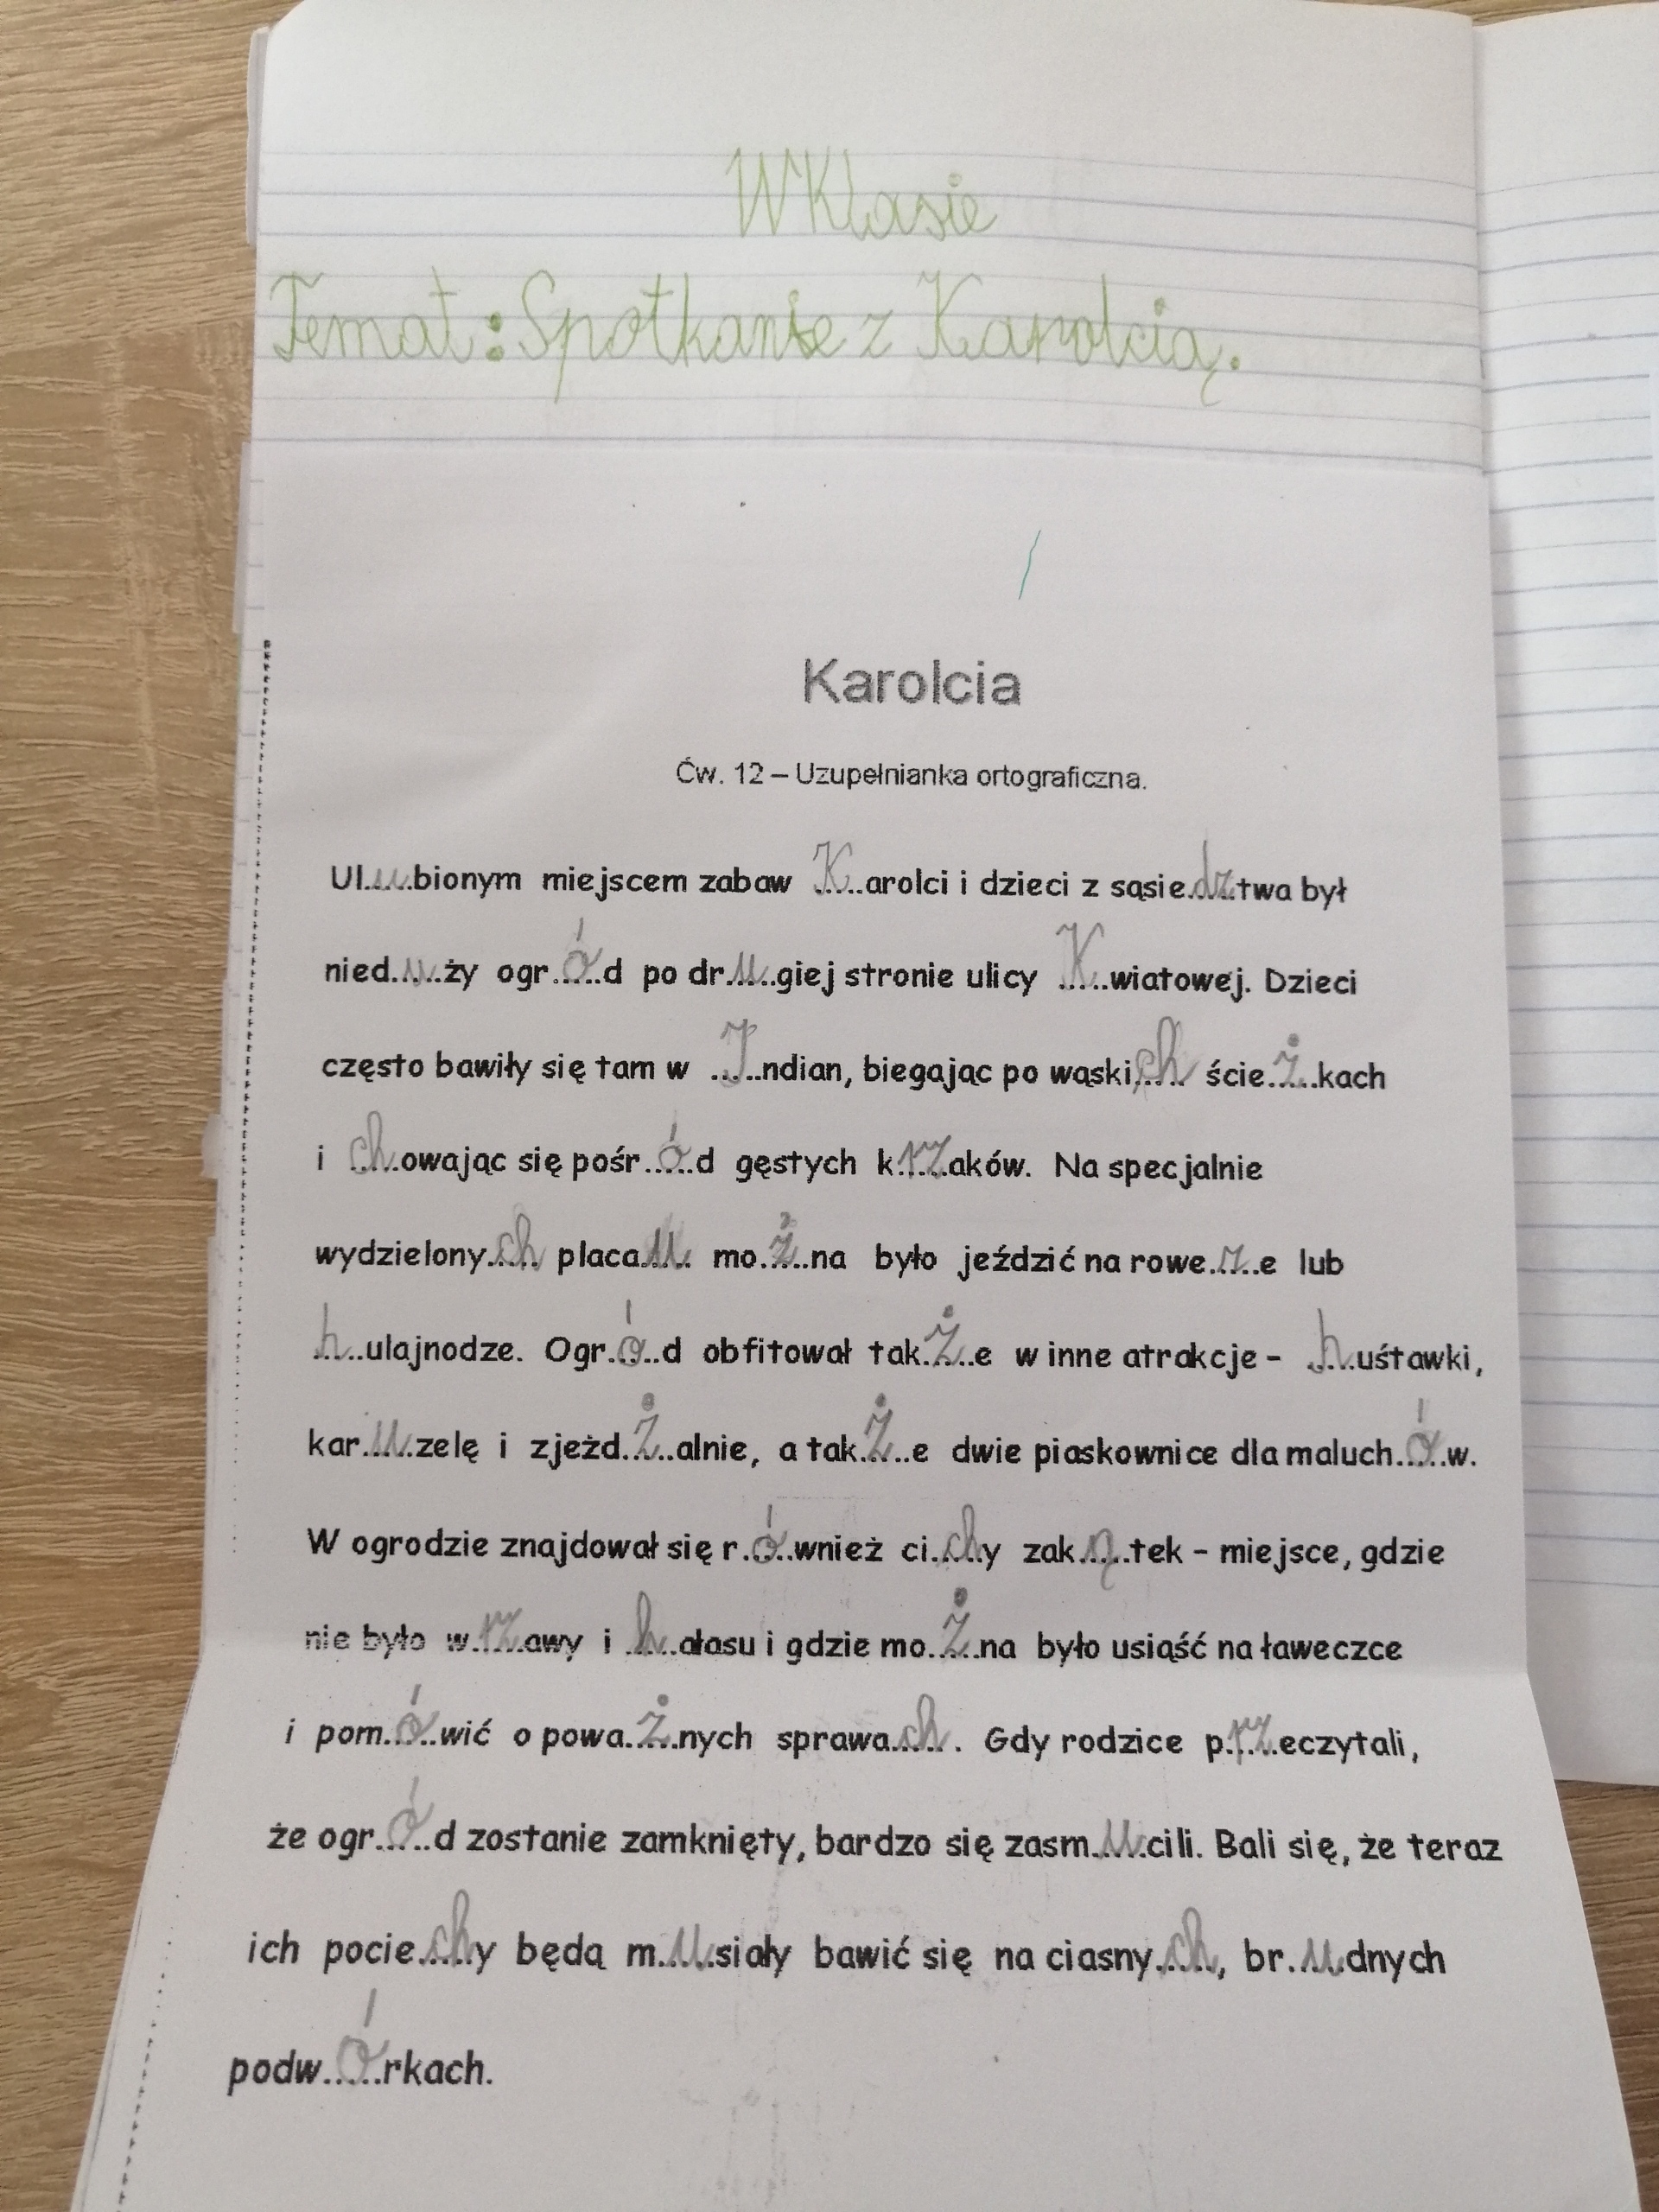 W Klasie
Temat: Spotkanie z Karolcią.
Karolcia
Ćw. 12 – Uzupełnianka ortograficzna.
Ul..u..bionym miejscem zabaw K...arolci i dzieci z sąsie..dz..twa był
nied..u..ży ogr..ó..d po dr..u..giej stronie ulicy K...wiatowej. Dzieci
często bawiły się tam w ..I..ndian, biegając po wąski..ch.. ście..ż..kach
i ..ch..owając się pośr..ó..d gęstych k..rz..aków. Na specjalnie
wydzielony..ch.. placa..u.. mo..ż..na było jeździć na rowe..rz..e lub
..h..ulajnodze. Ogr..ó..d obfitował tak..ż..e w inne atrakcje – ..h..uśtawki,
kar..u..zelę i zjeżd..ż..alnie, a tak..ż..e dwie piaskownice dla maluch..ó..w.
W ogrodzie znajdował się r..ó..wnież ci..ch..y zak..ą..tek – miejsce, gdzie
nie było w..rz..awy i ..h..ałasu i gdzie mo..ż..na było usiąść na ławeczce
i pom..ó..wić o powa..ż..nych sprawa..ch.. . Gdy rodzice p..rz..eczytali,
że ogr..ó..d zostanie zamknięty, bardzo się zasm..u..cili. Bali się, że teraz
ich pocie..ch..y będą m..u..siały bawić się na ciasny..ch.., br..u..dnych
podw..ó..rkach.